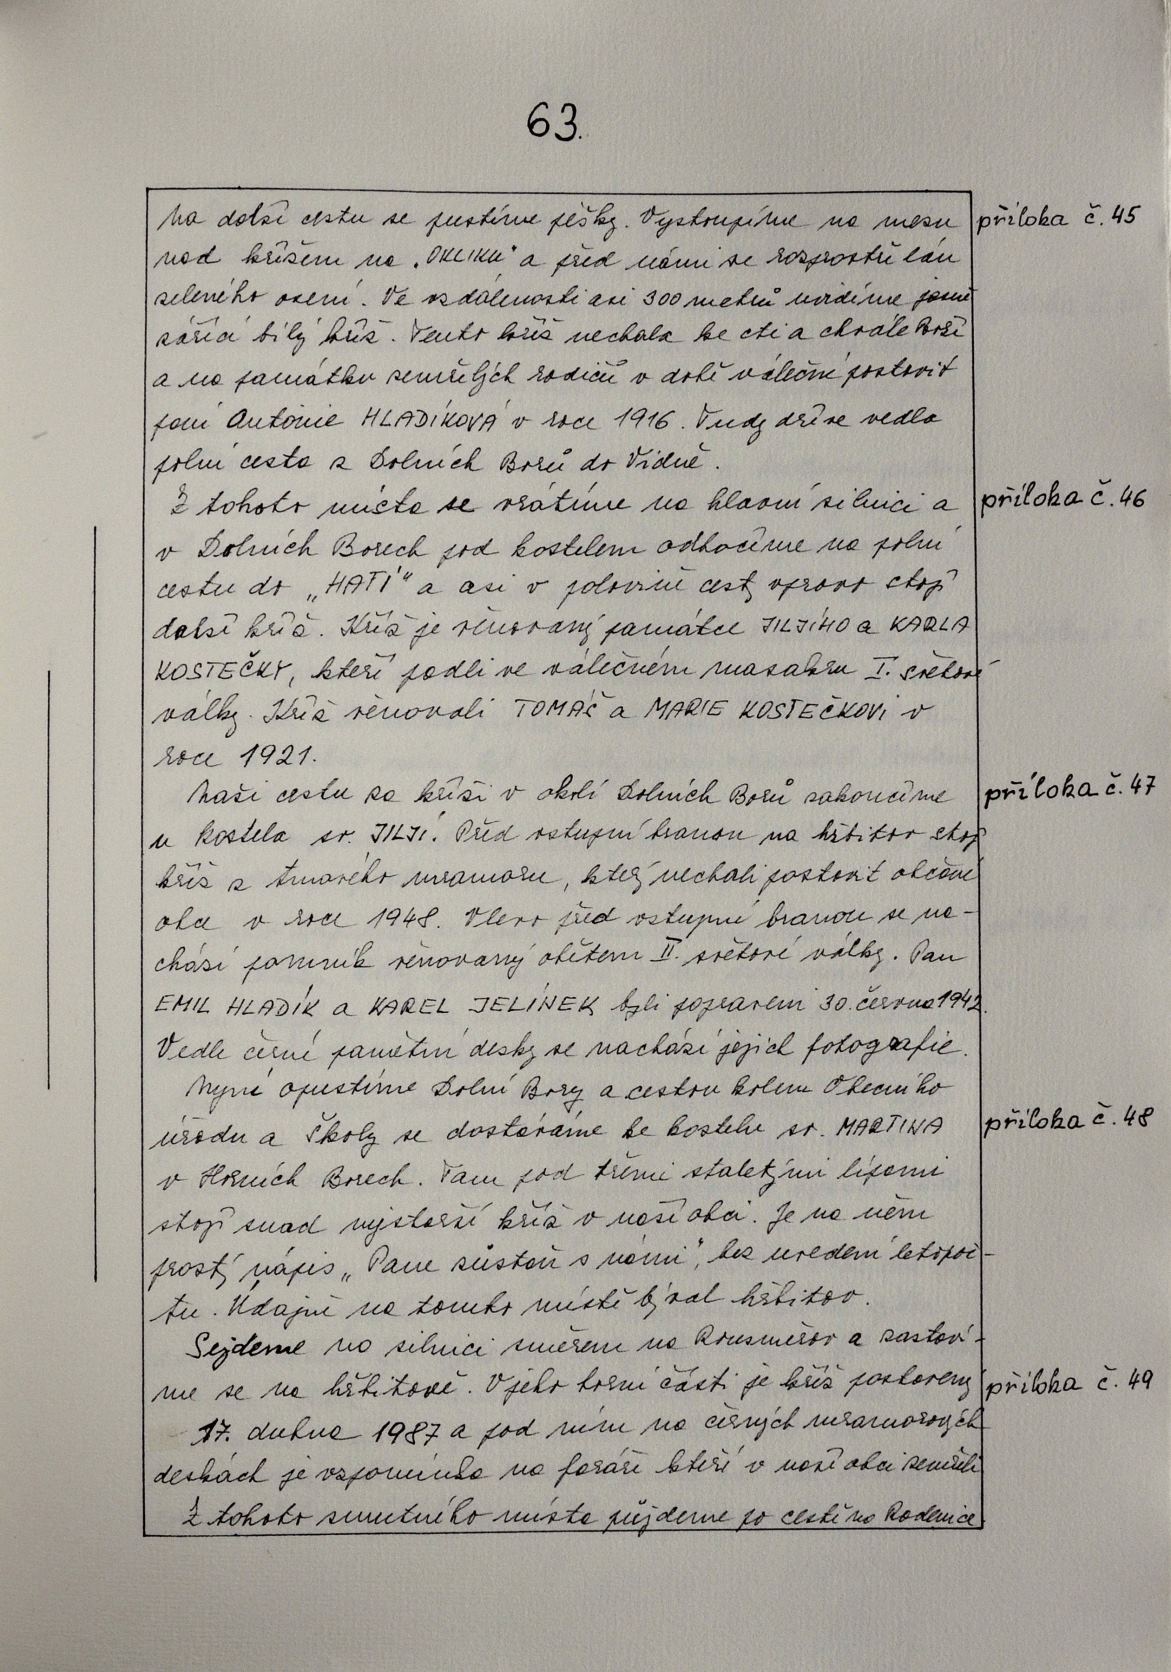 63.
Na další cestu se pustíme pěšky. Vystoupíme na mezu příloha č. 45
nad křížem na „OKLIKU“ a před námi se rozprostře lán
zeleného osení. Ve vzdálenosti asi 300 metrů uvidíme jasně
zářící bílý kříž. Tento kříž nechala ke cti a chvále Boží
a na památku zemřelých rodičů v době válečné postavit
paní Antonie HLADÍKOVÁ v roce 1916. Tudy dříve vedla
polní cesta z Dolních Borů do Vídně.
Z tohoto místa se vrátíme na hlavní silnici a příloha č. 46
v Dolních Borech pod kostelem odbočíme na polní
cestu do „HATÍ“ a asi v polovině cesty vpravo stojí
další kříž. Kříž je věnovaný památce JILJÍHO a KARLA
KOSTEČKY, kteří padli ve válečném masakru I. světové
války. Kříž věnovali TOMÁŠ a MARIE KOSTEČKOVI v
roce 1921.
Naši cestu za kříži v okolí Dolních Borů zakončíme příloha č. 47
u kostela sv. JILJÍ. Před vstupní branou na hřbitov stojí
kříž z tmavého mramoru, který nechali postavit občané
obce v roce 1948. Vlevo před vstupní branou se na-
chází pomník věnovaný obětem II. světové války. Pan
EMIL HLADÍK a KAREL JELÍNEK byli popraveni 30. června 1942.
Vedle černé pamětní desky se nachází jejich fotografie.
Nyní opustíme Dolní Bory a cestou kolem Obecního
úřadu a Školy se dostáváme ke kostelu sv. MARTINA příloha č. 48
v Horních Borech. Tam pod třemi staletými lípami
stojí snad nejstarší kříž v naší obci. Je na něm
prostý nápis „Pane zůstaň s námi“, bez uvedení letopoč-
tu. Údajně na tomto místě býval hřbitov.
Sejdeme na silnici směrem na Rousměrov a zastaví-
me se na hřbitově. V jeho horní části je kříž postavený příloha č. 49
17. dubna 1987 a pod ním na černých mramorových
deskách je vzpomínka na faráře kteří v naší obci zemřeli
Z tohoto smutného místa půjdeme po cestě na Radenice